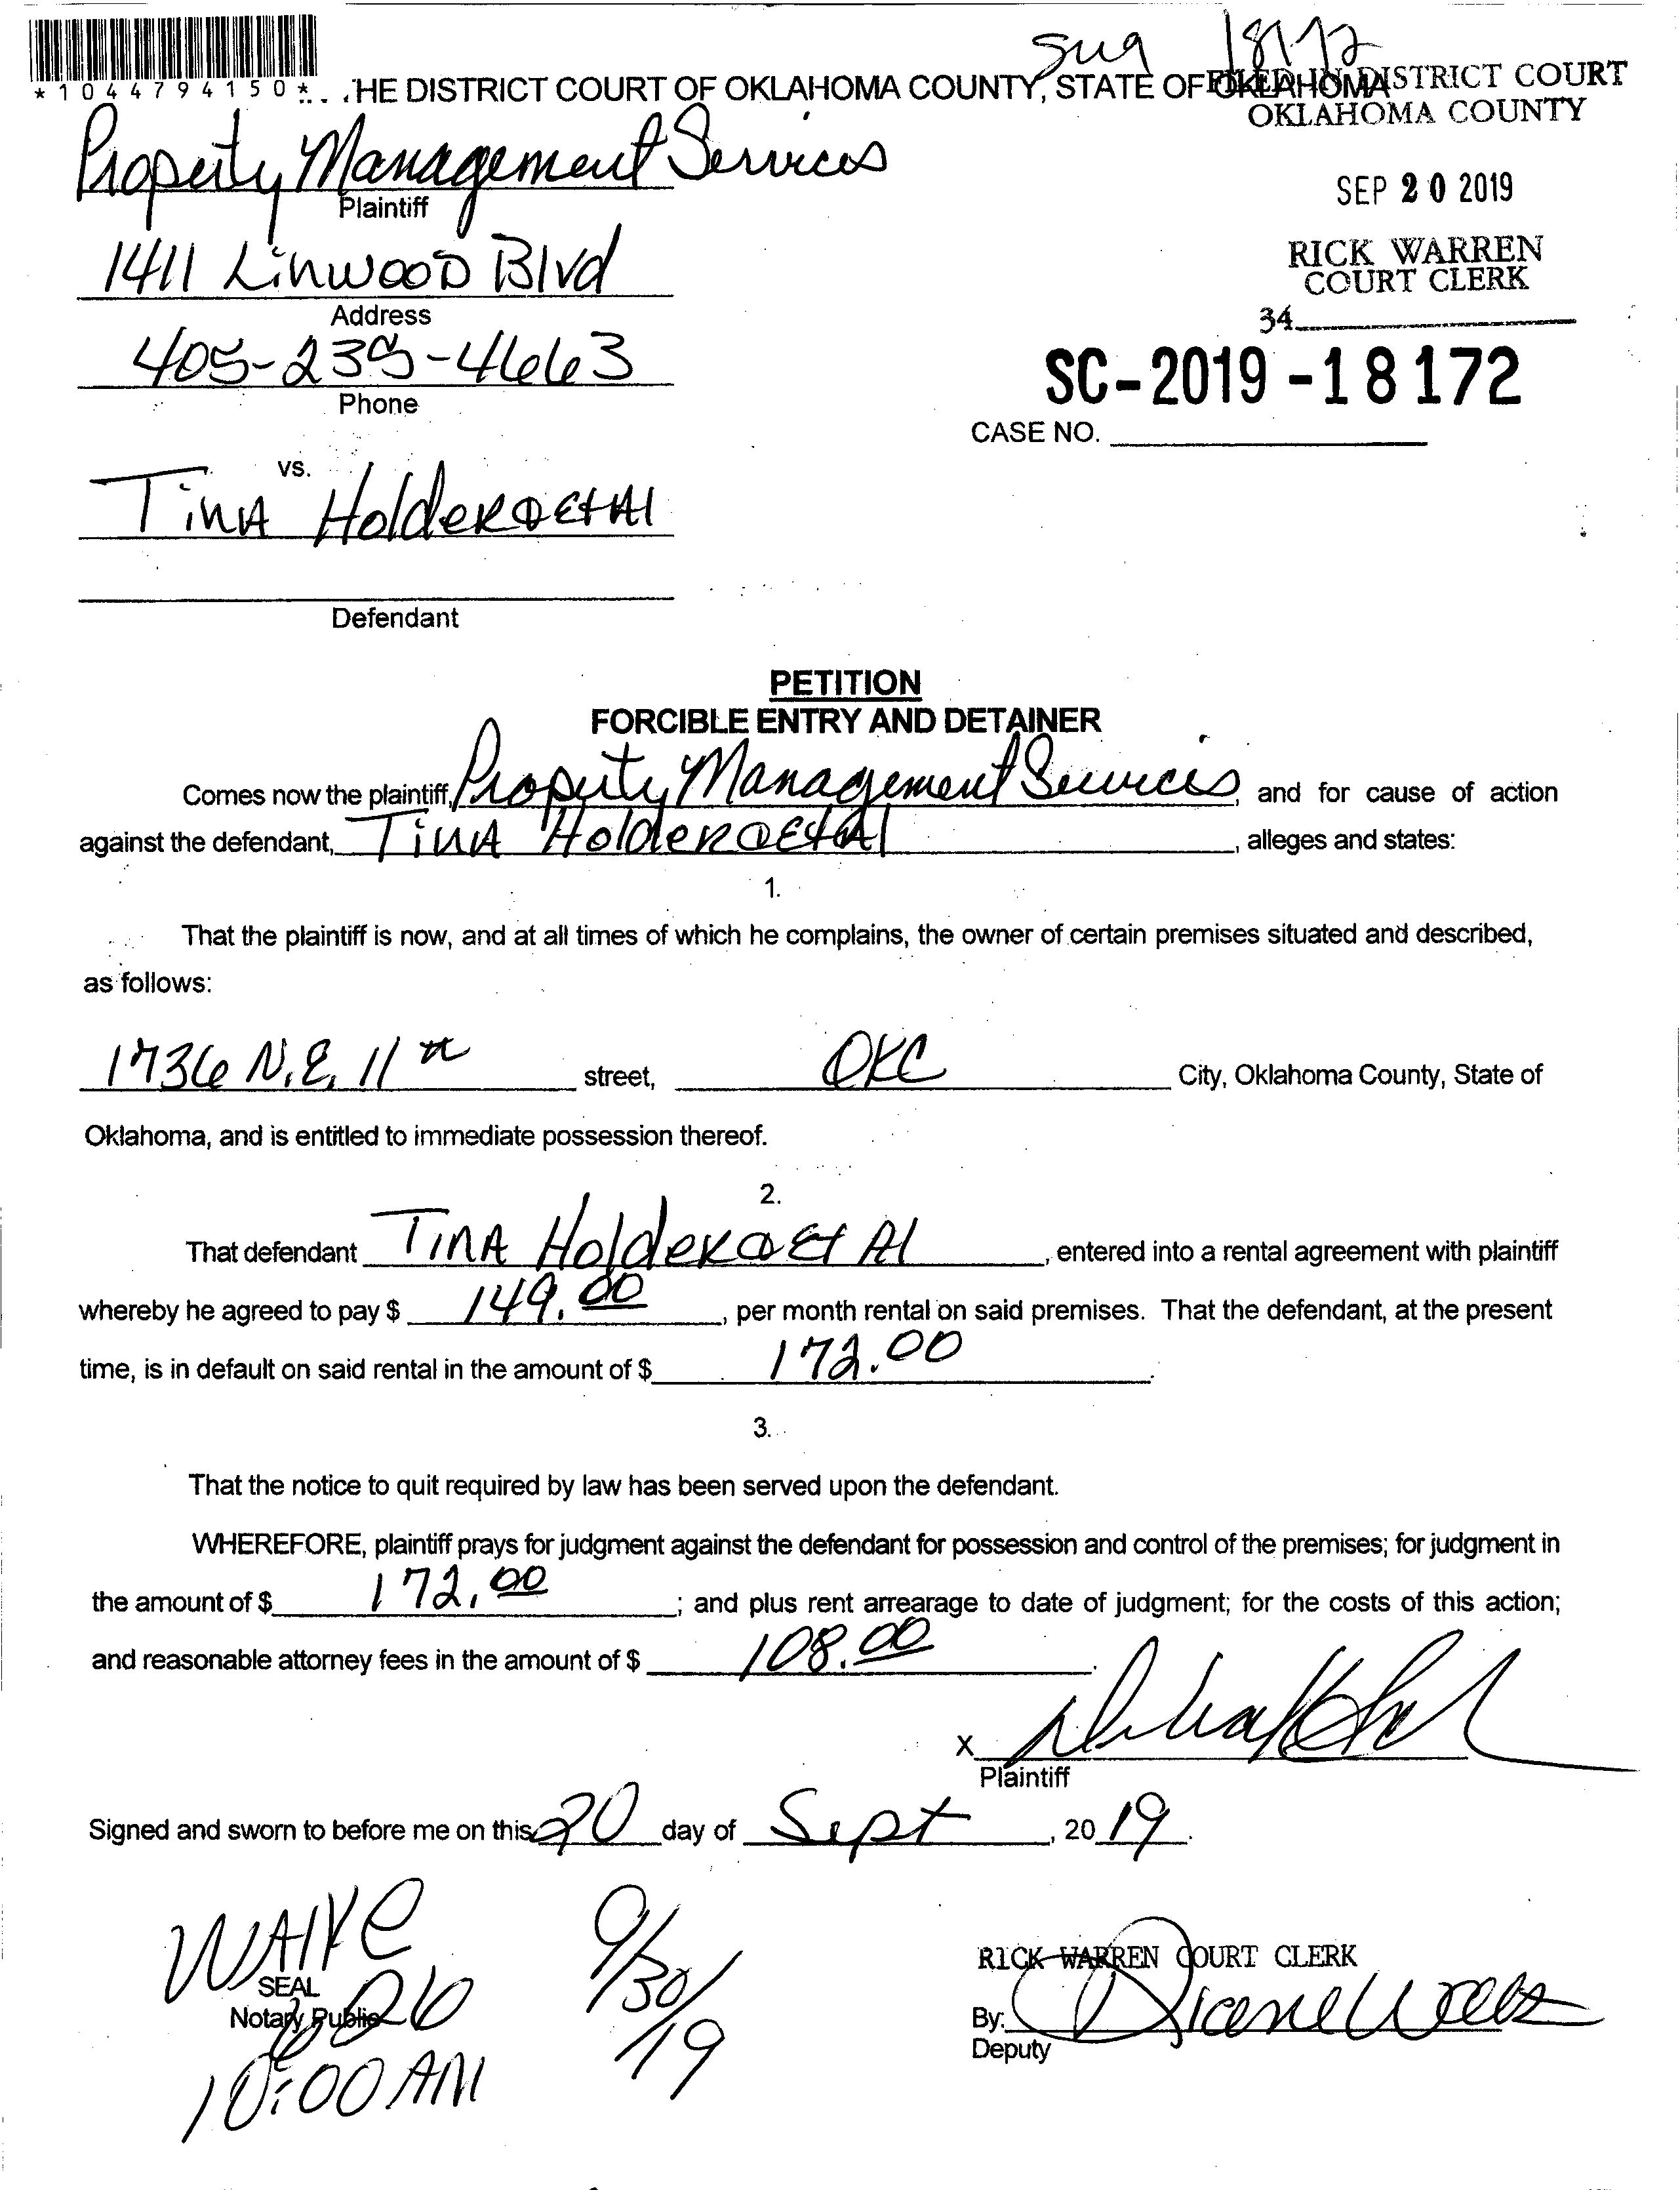 *1044794150*
SC-2019-18172
THE DISTRICT COURT OF OKLAHOMA COUNTY, STATE OF OKLAHOMA
FILED IN DISTRICT COURT
OKLAHOMA COUNTY
SEP 20 2019
RICK WARREN
COURT CLERK
34
Property Management Services
Plaintiff
1411 Linwood Blvd
Address
405-235-4663
Phone
CASE NO.
vs.
Tina Holder et Al
Defendant
PETITION
FORCIBLE ENTRY AND DETAINER
Comes now the plaintiff, Property Management Services, and for cause of action
against the defendant, Tina Holder et Al, alleges and states:
1.
That the plaintiff is now, and at all times of which he complains, the owner of certain premises situated and described,
as follows:
1736 N.E. 11th street, OKC City, Oklahoma County, State of
Oklahoma, and is entitled to immediate possession thereof.
2.
That defendant Tina Holder et Al, entered into a rental agreement with plaintiff
whereby he agreed to pay $ 149.00, per month rental on said premises. That the defendant, at the present
time, is in default on said rental in the amount of $ 172.00.
3.
That the notice to quit required by law has been served upon the defendant.
WHEREFORE, plaintiff prays for judgment against the defendant for possession and control of the premises; for judgment in
the amount of $ 172.00; and plus rent arrearage to date of judgment; for the costs of this action;
and reasonable attorney fees in the amount of $ 108.00.
x
Plaintiff
Signed and sworn to before me on this 20 day of Sept, 2019.
WAIVE
SEAL
Notary Public
10:00 AM
9/30/19
RICK WARREN COURT CLERK
By: Diane Wells
Deputy